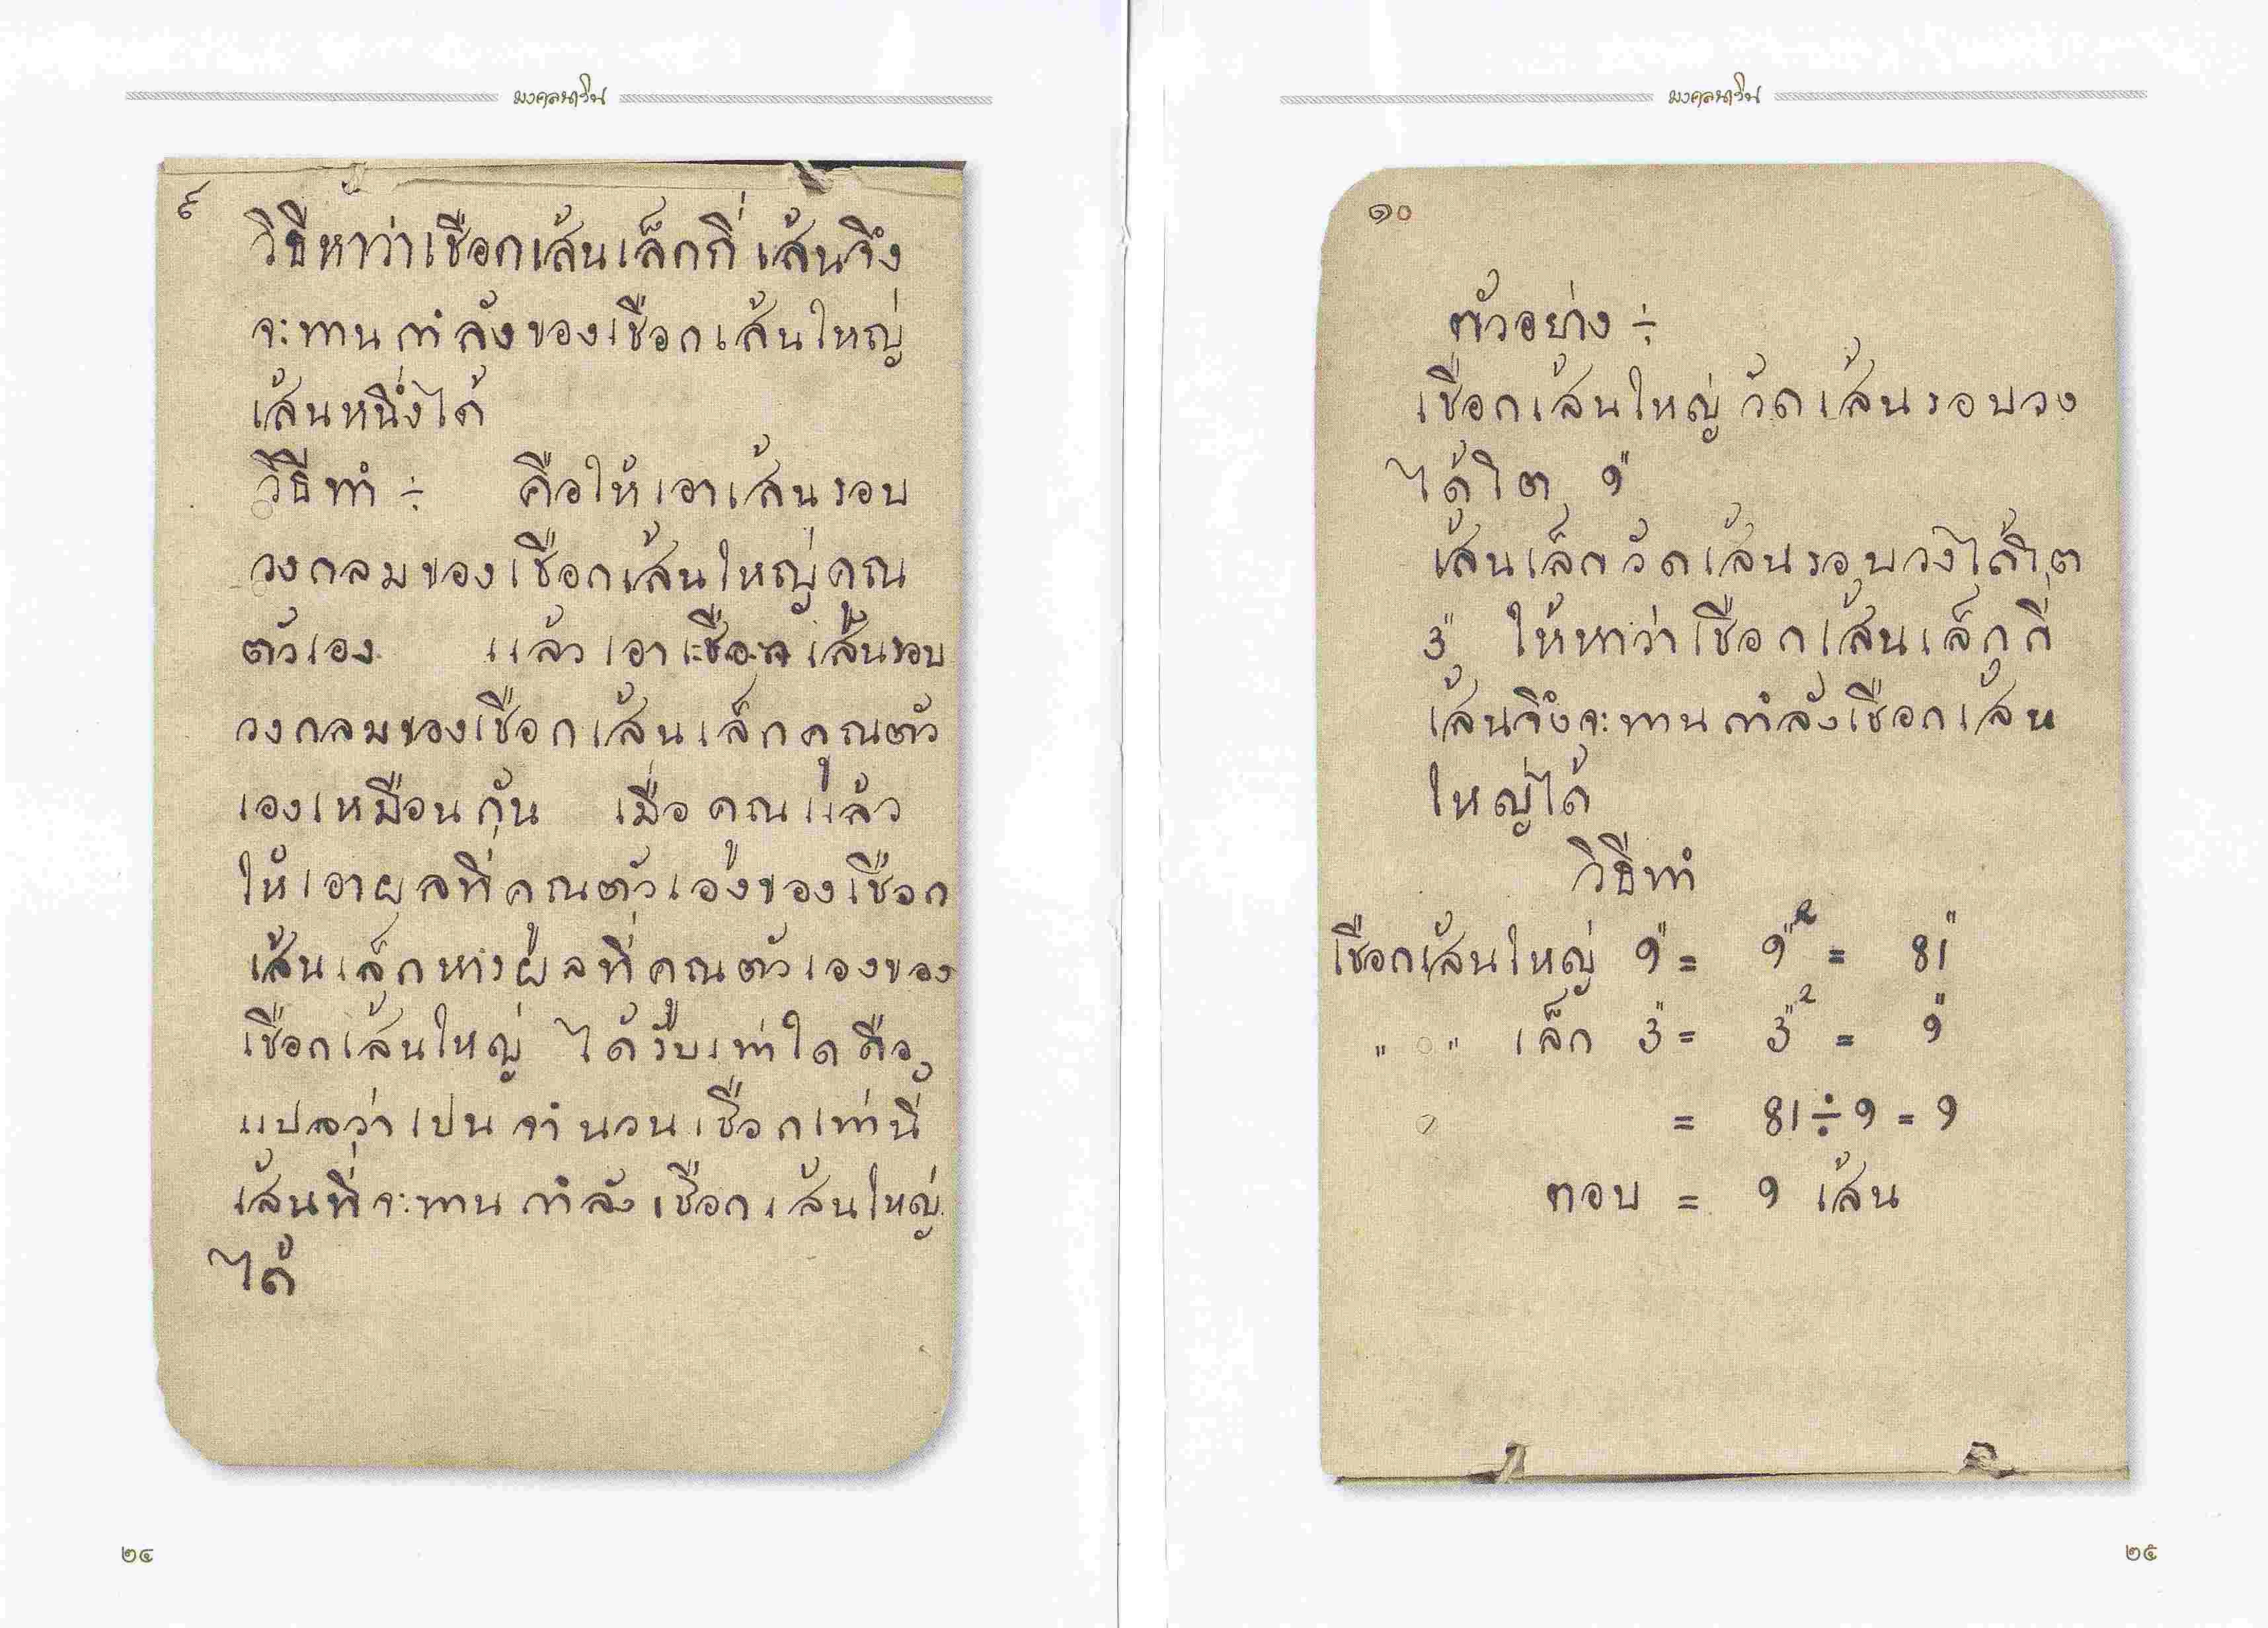 มงคลนาวิน
๙
วิธีหาว่าเชือกเส้นเล็กกี่เส้นจึง
จะทานกำลังของเชือกเส้นใหญ่
เส้นหนึ่งได้
วิธีทำ ÷ คือให้เอาเส้นรอบ
วงกลมของเชือกเส้นใหญ่คูณ
ตัวเอง แล้วเอาเชือกเส้นรอบ
วงกลมของเชือกเส้นเล็กคูณตัว
เองเหมือนกัน เมื่อคูณแล้ว
ให้เอาผลที่คูณตัวเองของเชือก
เส้นเล็กหารผลที่คูณตัวเองของ
เชือกเส้นใหญ่ ได้รับเท่าใดคือ
แปลว่าเปนจำนวนเชือกเท่านี้
เส้นที่จะทานกำลังเชือกเส้นใหญ่
ได้
๒๔
มงคลนาวิน
๑๐
ตัวอย่าง ÷
เชือกเส้นใหญ่วัดเส้นรอบวง
ได้โต 9"
เส้นเล็กวัดเส้นรอบวงได้โต
3" ให้หาว่าเชือกเส้นเล็กกี่
เส้นจึงจะทานกำลังเชือกเส้น
ใหญ่ได้
วิธีทำ
เชือกเส้นใหญ่ 9" = 9"² = 81"
" " เล็ก 3" = 3"² = 9"
= 81 ÷ 9 = 9
ตอบ = 9 เส้น
๒๕